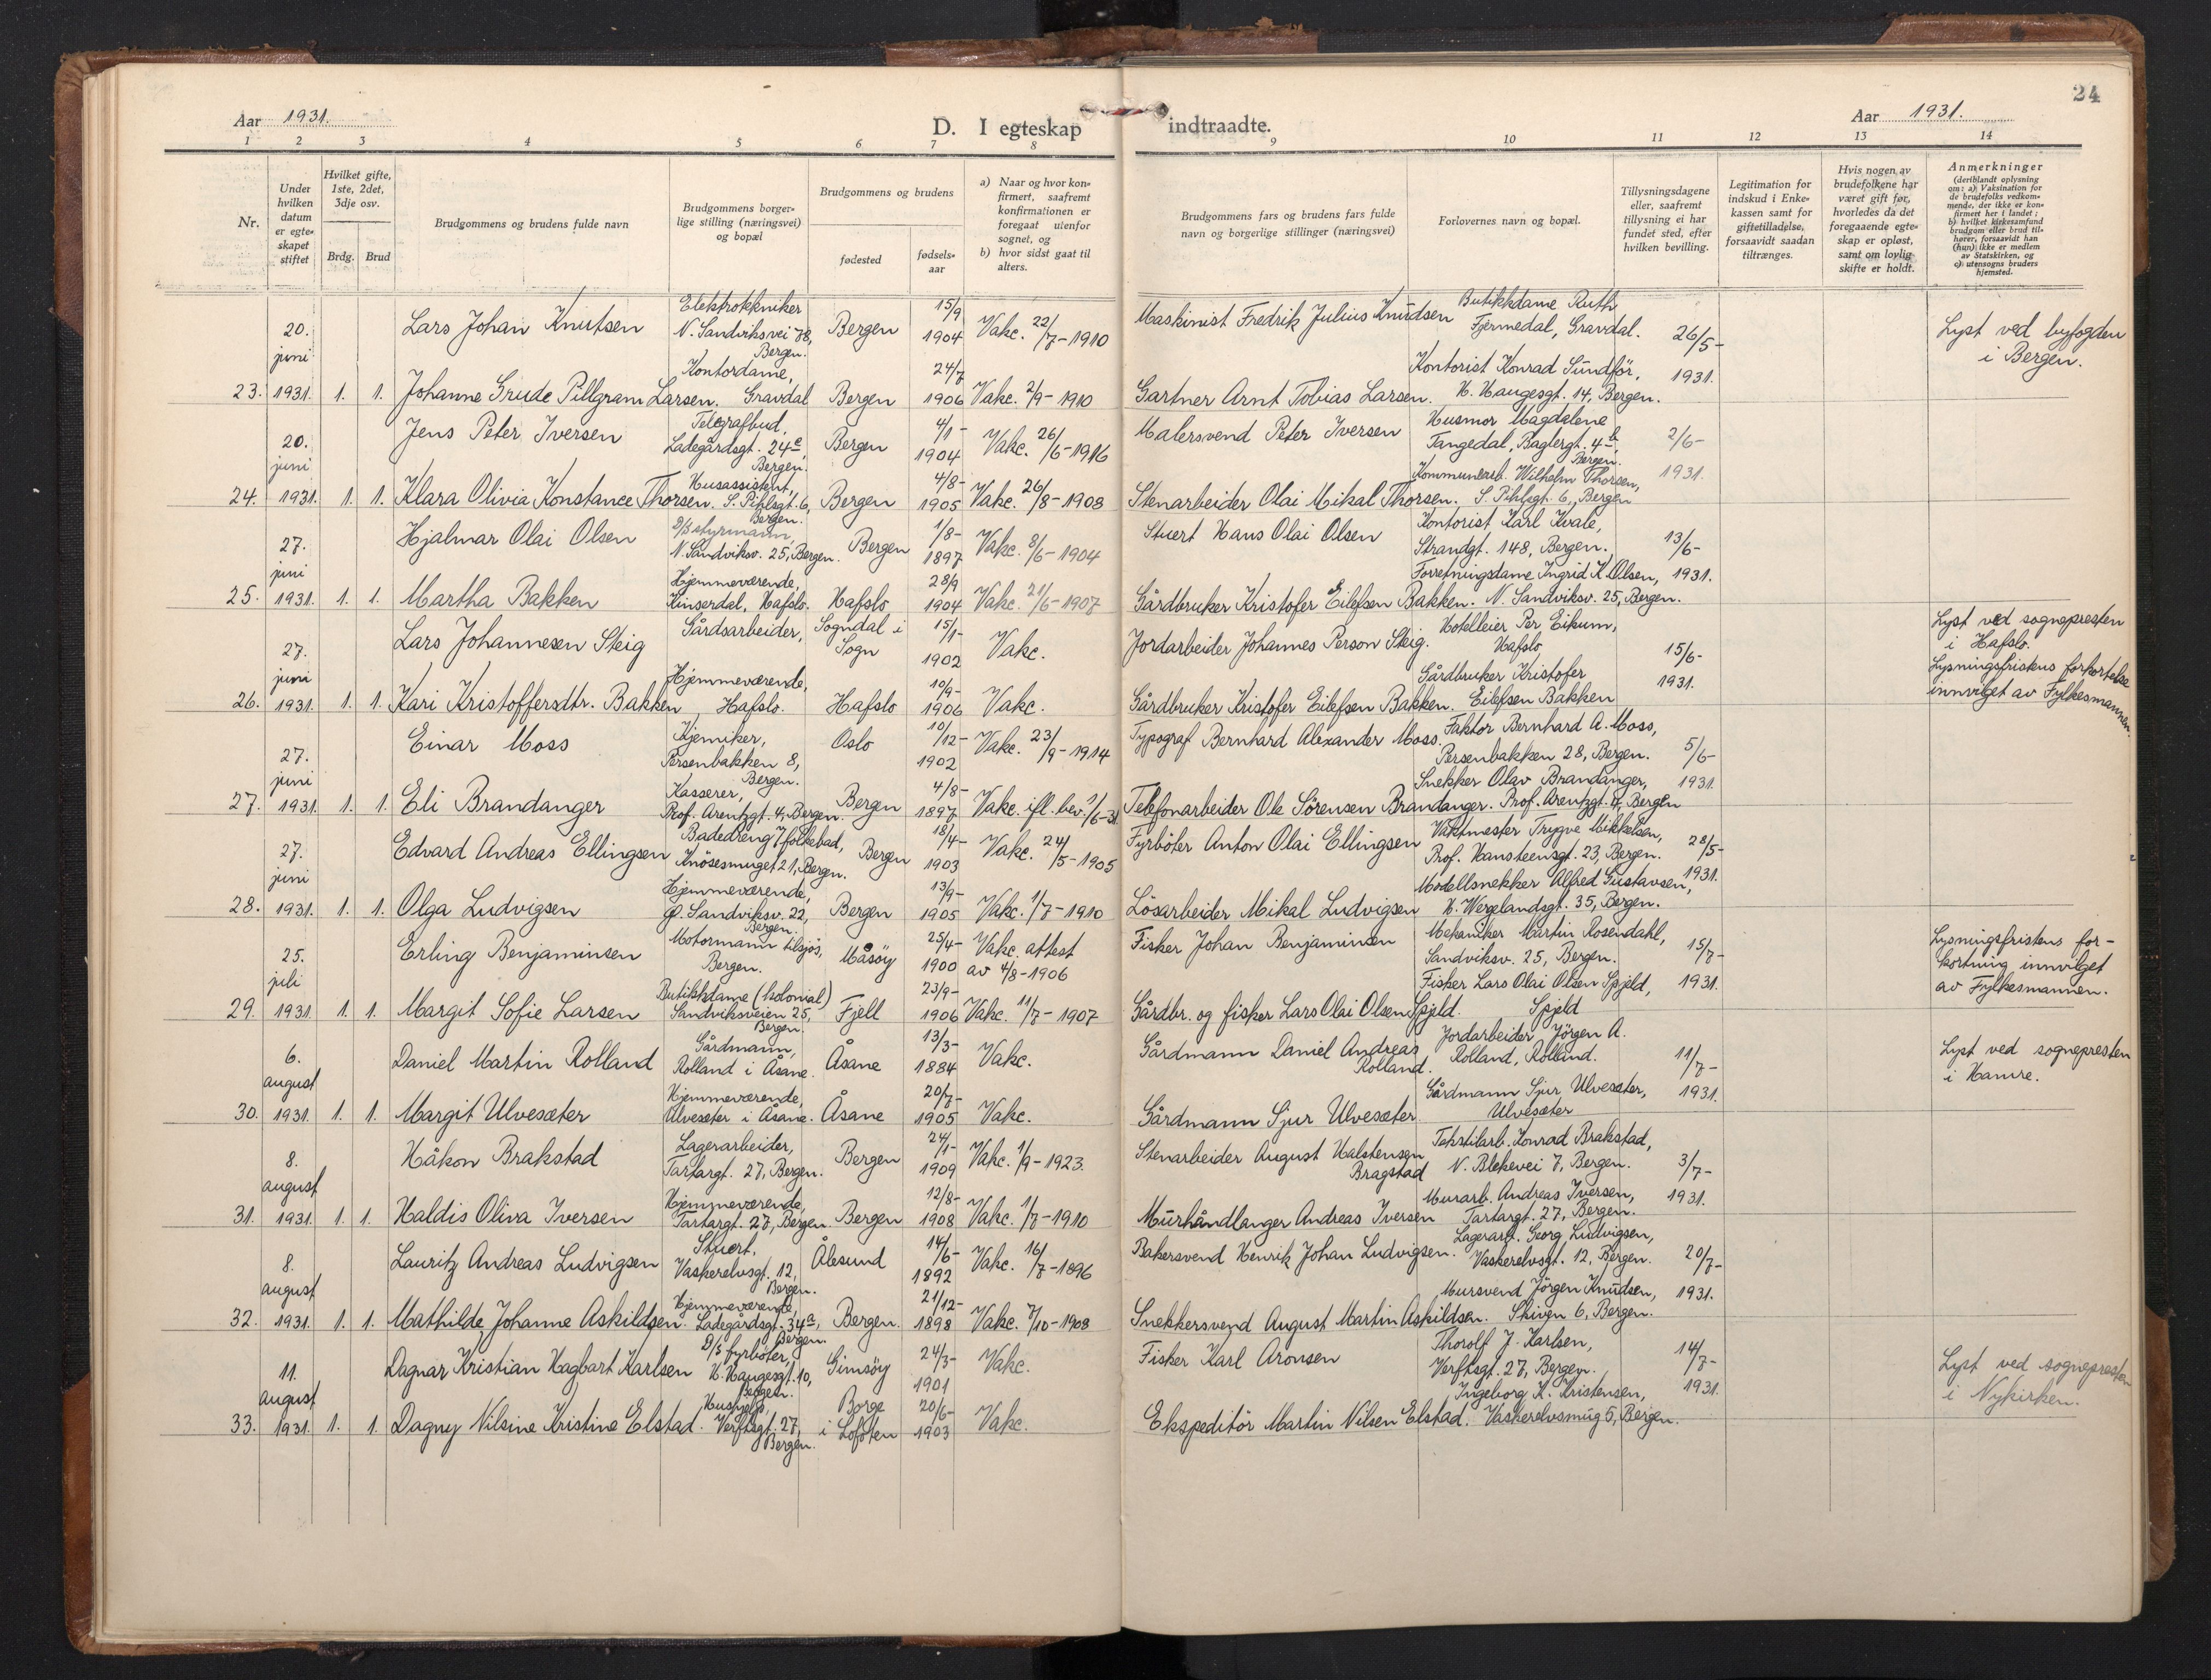 24
Aar 1931.
D. I egteskap indtraadte.
Aar 1931.
1 2 3 4 5 6 7 8 9 10 11 12 13 14
Nr.
Under hvilken datum er egteskapet stiftet
Hvilket gifte, 1ste, 2det, 3dje osv.
Brdg. Brud
Brudgommens og brudens fulde navn
Brudgommens borgerlige stilling (næringsvei) og bopæl
Brudgommens og brudens
fødested
fødselsaar
a) Naar og hvor konfirmert, saafremt konfirmationen er foregaat utenfor sognet, og
b) hvor sidst gaat til alters.
Brudgommens fars og brudens fars fulde navn og borgerlige stillinger (næringsvei)
Forlovernes navn og bopæl.
Tillysningsdagene eller, saafremt tillysning ei har fundet sted, efter hvilken bevilling.
Legitimation for indskud i Enkekassen samt for giftetilladelse, forsaavidt saadan tiltrænges.
Hvis nogen av brudefolkene har været gift før, hvorledes da det foregaaende egteskap er opløst, samt om lovlig skifte er holdt.
Anmerkninger
(deriblandt oplysning om: a) Vaksination for de brudefolks vedkommende, der ikke er konfirmert her i landet; b) hvilket kirkesamfund brudgom eller brud tilhører, forsaavidt han (hun) ikke er medlem av Statskirken, og c) utensogns bruders hjemsted.
23. 20. juni 1931. 1. 1.
Lars Johan Knutsen
Elektrotekniker N. Sandviksvei 78, Bergen.
Bergen 15/9 1904 Vakc. 22/7-1910
Maskinist Fredrik Julius Knudsen
Butikkdame Ruth Fjermedal, Gravdal.
26/5- 1931.
Lyst ved byfogden i Bergen.
Johanne Grude Pillgram Larsen.
Kontordame, Gravdal
Bergen 24/7 1906 Vakc. 2/9-1910
Gartner Arnt Tobias Larsen.
Kontorist Konrad Sundför, H. Haugesgt. 14, Bergen.
24. 20. juni 1931. 1. 1.
Jens Peter Iversen
Telegrafbud, Ladegårdsgt. 24c, Bergen.
Bergen 4/1- 1904 Vakc. 26/6-1916
Malersvend Peter Iversen
Husmor Magdalene Tangedal, Baglergt. 4b, Bergen.
2/6- 1931.
Klara Olivia Konstance Thorsen.
Husassistent, S. Pihlsgt. 6, Bergen.
Bergen 4/8- 1905 Vakc. 26/8-1908
Stenarbeider Olai Mikal Thorsen.
Kommunearb. Wilhelm Thorsen, S. Pihlsgt. 6, Bergen
25. 27. juni 1931. 1. 1.
Hjalmar Olai Olsen
D/S styrmann, N. Sandviksv. 25, Bergen.
Bergen 1/8- 1897 Vakc. 8/6-1904
Stuert Hans Olai Olsen
Kontorist Karl Kvale, Strandgt. 148, Bergen.
13/6- 1931.
Martha Bakken
Hjemmeværende, Kinserdal, Hafslo.
Hafslo 28/9 1904 Vakc. 21/6-1907
Gårdbruker Kristofer Eilefsen Bakken.
Forretningsdame Ingrid K. Olsen, N. Sandviksv. 25, Bergen.
26. 27. juni 1931. 1. 1.
Lars Johannesen Steig
Gårdsarbeider,
Sogndal i Sogn 15/1- 1902 Vakc.
Jordarbeider Johannes Person Steig.
Hotelleier Per Eikum, Hafslo
15/6- 1931.
Lyst ved sognepresten i Hafslo. Lysningsfristens forkortelse innvilget av Fylkesmannen.
Kari Kristoffersdtr. Bakken
Hjemmeværende, Hafslo.
Hafslo 10/9- 1906 Vakc.
Gårdbruker Kristofer Eilefsen Bakken.
Gårdbruker Kristofer Eilefsen Bakken
27. 27. juni 1931. 1. 1.
Einar Moss
Kjemiker, Persenbakken 8, Bergen.
Oslo 10/12- 1902 Vakc. 23/9-1914
Typograf Bernhard Alexander Moss.
Faktor Bernhard A. Moss, Persenbakken 28, Bergen.
5/6- 1931.
Eli Brandanger
Kasserer, Prof. Arentzgt. 4, Bergen.
Bergen 4/8- 1897 Vakc. ifl. bev. 1/6-31
Telefonarbeider Ole Sörensen Brandanger.
Snekker Olav Brandanger, Prof. Arentzgt. 4, Bergen
28. 27. juni 1931. 1. 1.
Edvard Andreas Ellingsen
Badedreng v/folkebad, Knösesmuget 21, Bergen.
Bergen 18/4- 1903 Vakc. 24/5-1905
Fyrböter Anton Olai Ellingsen
Vaktmester Trygve Mikkelsen, Prof. Hansteensgt. 23, Bergen.
28/5- 1931.
Olga Ludvigsen
Hjemmeværende, Ø. Sandviksv. 22, Bergen.
Bergen 13/9- 1905 Vakc. 1/7-1910
Lösarbeider Mikal Ludvigsen
Modellsnekker Alfred Gustavsen, H. Wergelandsgt. 35, Bergen.
29. 25. juli 1931. 1. 1.
Erling Benjaminsen
Motormann tilsjös, Bergen.
Måsöy 25/4- 1900 Vakc. attest av 4/8-1906
Fisker Johan Benjaminsen
Mekaniker Martin Rosendahl, Sandviksv. 25, Bergen.
15/7- 1931.
Lysningsfristens forkortning innvilget av Fylkesmannen.
Margit Sofie Larsen
Butikkdame (kolonial) Sandviksveien 25, Bergen.
Fjell 23/9- 1906 Vakc. 11/7-1907
Gårdbr. og fisker Lars Olai Olsen Spjeld.
Fisker Lars Olai Olsen Spjeld, Spjeld
30. 6. august 1931. 1. 1.
Daniel Martin Rolland
Gårdmann, Rolland i Åsane.
Åsane 13/3- 1884 Vakc.
Gårdmann Daniel Andreas Rolland.
Jordarbeider Jörgen A. Rolland, Rolland.
11/7- 1931.
Lyst ved sognepresten i Hamre.
Margit Ulvesæter
Hjemmeværende, Ulvesæter i Åsane.
Åsane 20/7- 1905 Vakc.
Gårdmann Sjur Ulvesæter
Gårdmann Sjur Ulvesæter, Ulvesæter
31. 8. august 1931. 1. 1.
Håkon Brakstad
Lagerarbeider, Tartargt. 27, Bergen.
Bergen 24/1- 1909 Vakc. 1/9-1923.
Stenarbeider August Halstensen Bragstad
Tekstilarb. Konrad Brakstad, N. Blekevei 7, Bergen.
3/7- 1931.
Haldis Oliva Iversen
Hjemmeværende, Tartargt. 27, Bergen.
Bergen 12/8- 1908 Vakc. 1/7-1910
Murhåndlanger Andreas Iversen
Murarb. Andreas Iversen, Tartargt. 27, Bergen.
32. 8. august 1931. 1. 1.
Lauritz Andreas Ludvigsen
Stuert, Vaskerelvsgt. 12, Bergen.
Ålesund 14/6- 1892 Vakc. 16/7-1896
Bakersvend Henrik Johan Ludvigsen.
Lagerarb. Georg Ludvigsen, Vaskerelvsgt. 12, Bergen.
20/7- 1931.
Mathilde Johanne Askildsen
Hjemmeværende, Ladegårdsgt. 34a, Bergen.
Bergen. 21/12- 1898 Vakc. 7/10-1908
Snekkersvend August Martin Askildsen.
Mursvend Jörgen Knudsen, Skiven 6, Bergen.
33. 11. august 1931. 1. 1.
Dagnar Kristian Hagbart Karlsen
D/S fyrböter, H. Haugesgt. 10, Bergen.
Gimsöy 24/3- 1901 Vakc.
Fisker Karl Aronsen
Thorolf J. Karlsen, Verftsgt. 27, Bergen.
14/7- 1931.
Lyst ved sognepresten i Nykirken.
Dagny Nilsine Kristine Elstad.
Hushjelp, Verftsgt. 27, Bergen.
Borge i Lofoten 20/6- 1903 Vakc.
Ekspeditör Martin Nilsen Elstad.
Ingeborg K. Kristensen, Vaskerelvsmug 5, Bergen.